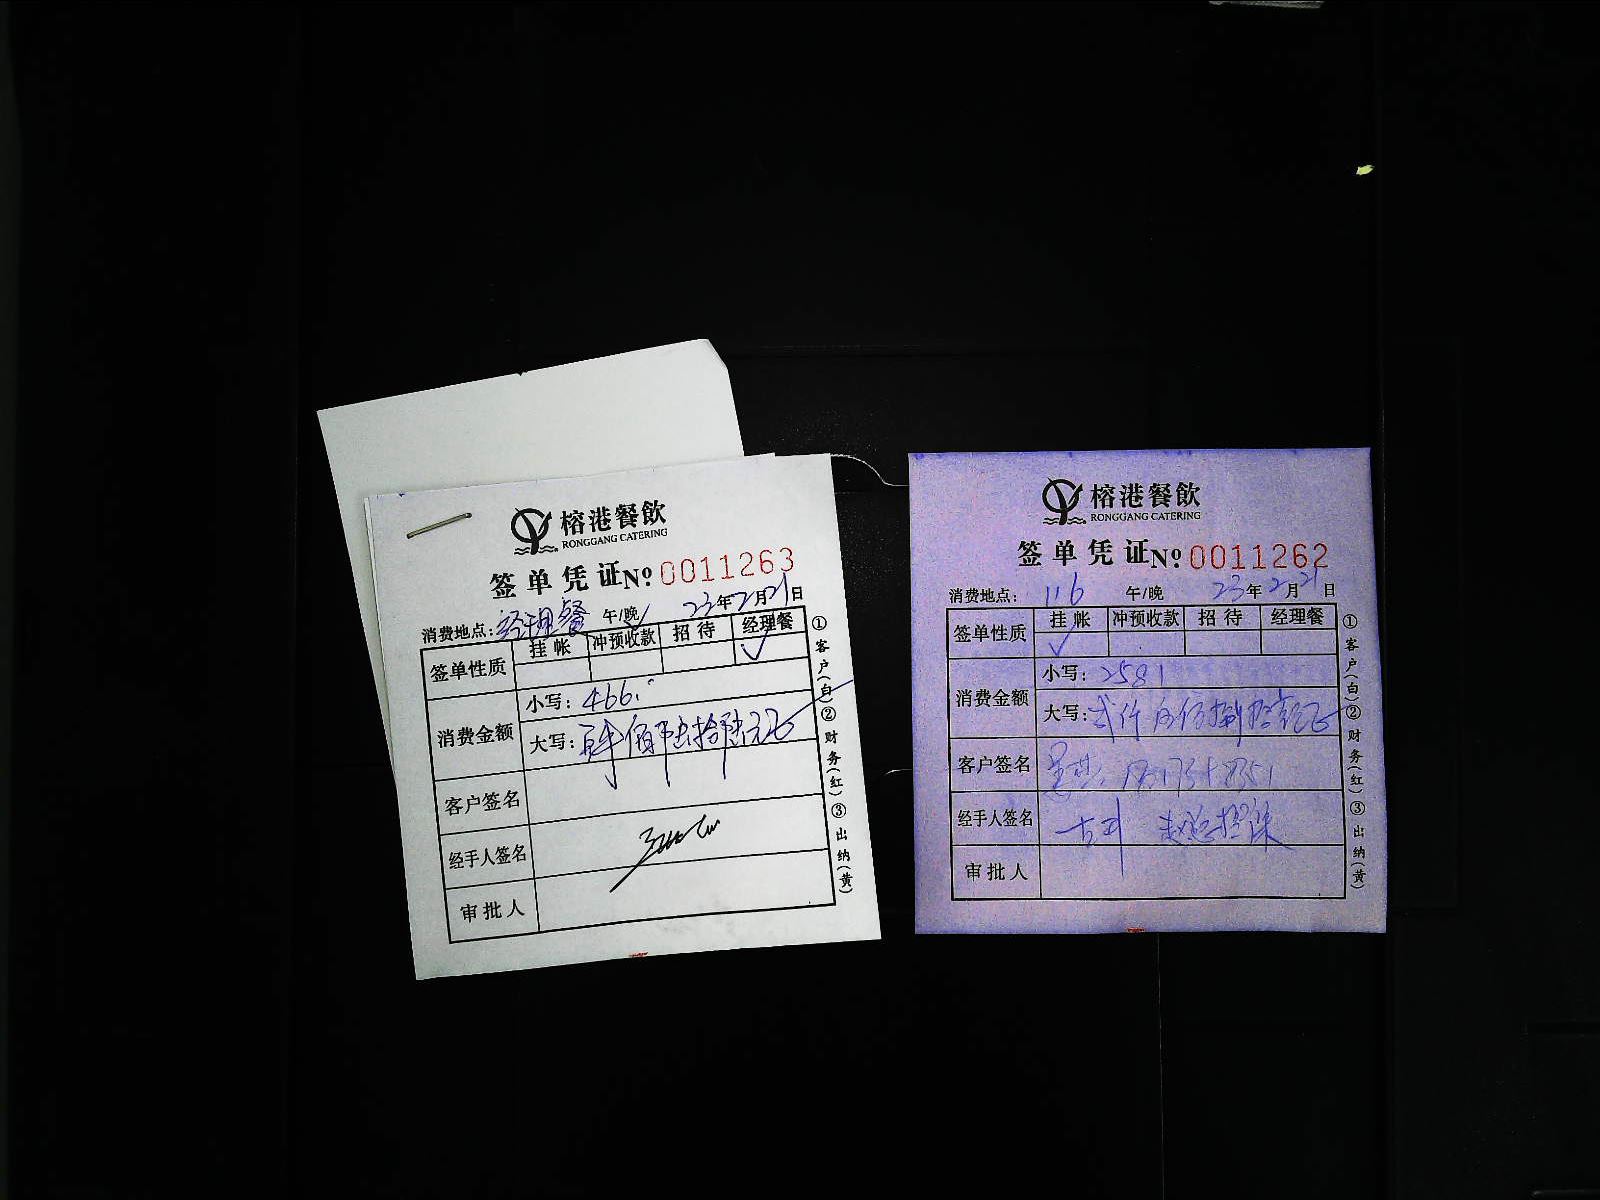 榕港餐飲
RONGGANG CATERING
签单凭证№ 0011263
消费地点：经理餐 午/晚 23年2月21日
签单性质 挂帐 冲预收款 招待 经理餐
✓
消费金额 小写：466.
大写：肆佰陆拾陆元正
客户签名
经手人签名
审批人
①客户(白)②财务(红)③出纳(黄)
榕港餐飲
RONGGANG CATERING
签单凭证№ 0011262
消费地点：116 午/晚 23年2月21日
签单性质 挂帐 冲预收款 招待 经理餐
✓
消费金额 小写：2581
大写：贰仟伍佰捌拾壹元正
客户签名
经手人签名
审批人
①客户(白)②财务(红)③出纳(黄)